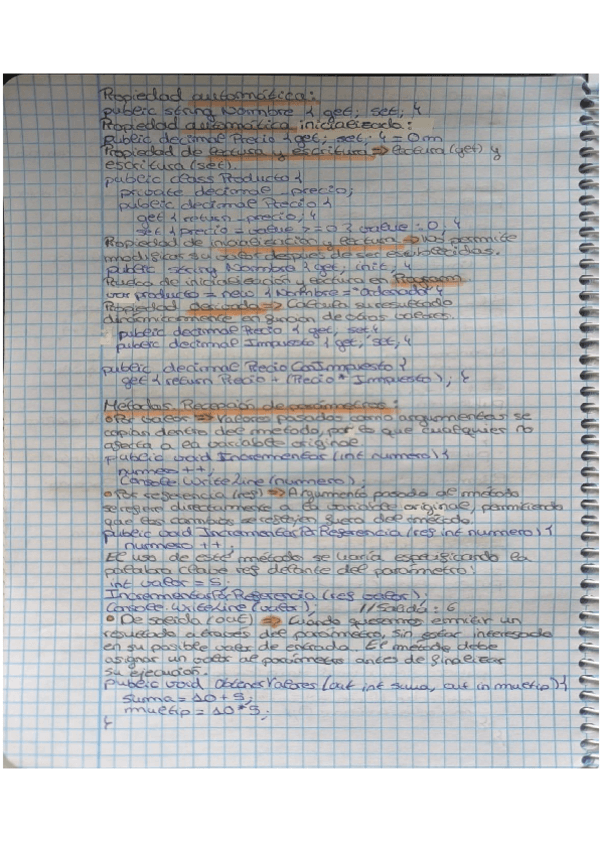 Propiedad automática:
public string Nombre { get; set; }
Propiedad automática inicializada:
public decimal Precio { get; set; } = 0m
Propiedad de lectura y escritura => lectura (get) y
escritura (set)
public class Producto {
private decimal _precio;
public decimal Precio {
get { return _precio; }
set { precio = value >= 0 ? value : 0; }
Propiedad de inicialización y lectura => No permite
modificar su valor después de ser establecidas.
public string Nombre { get; init; }
Prueba de inicialización y lectura en Program
var producto = new { Nombre = "Ordenador" }
Propiedad => Calcula su resultado
dinámicamente en función de otros valores.
public decimal Precio { get; set; }
public decimal Impuesto { get; set; }
public decimal PrecioConImpuesto {
get { return Precio + (Precio * Impuesto); }
Métodos Recepción de parámetros:
• Por valor => Valores pasados como argumentos se
copian dentro del método, por lo que cualquier no
afecta a la variable original
public void Incrementar (int numero) {
numero ++;
Console.WriteLine (numero);
• Por referencia (ref) => Argumento pasado al método
se refiere directamente a la variable original, permitiendo
que los cambios se reflejen fuera del método.
public void IncrementarPorReferencia (ref int numero) {
numero ++;
El uso de este método se varía especificando la
palabra clave ref delante del parámetro:
int valor = 5;
IncrementarPorReferencia (ref valor);
Console.WriteLine (valor); //Salida: 6
• De salida (out) => Cuando queremos enviar un
resultado a través del parámetro, sin estar interesado
en su posible valor de entrada. El método debe
asignar un valor al parámetro antes de finalizar
su ejecución.
public void ObtenerValores (out int suma, out in multip) {
suma = 10 + 5;
multip = 10 * 5;
}